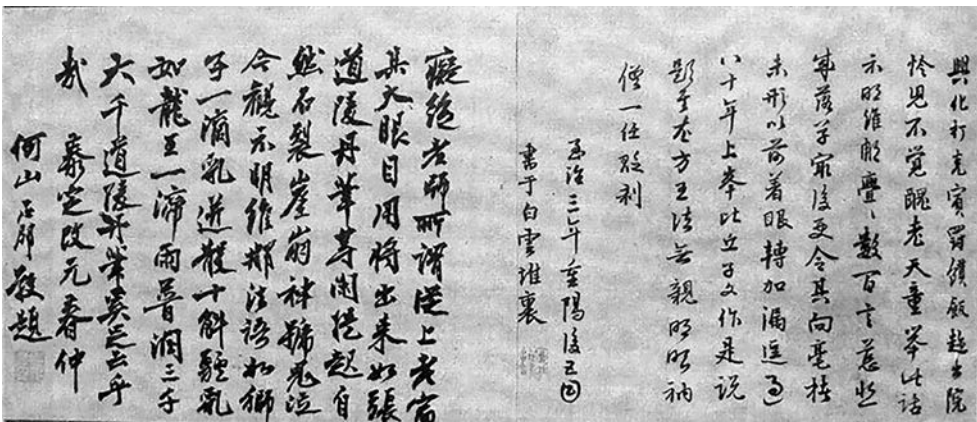 興化打克賓罰饡飯趂出院
怜児不覚醜老天童举此話
示明維那亹〻数百言忒怹
葉落了窮後更令其向毫楮
未形以前着眼轉加漏逗過
八十年上奉比丘子文作是説
題至左方王法無親明明衲
僧一任貶剥
至治三年重陽後五日
書于白雲堆裏
癡絶老師所謂從上老宿
具大眼目用將出來如張
道陵丹筆等閑提起自
然石裂崖崩神號鬼泣
今観示明維那法語如獅
子一滴乳迸散十斛驢乳
如龍王一滞雨普潤三千
大千道陵丹筆奚足云乎
哉
泰定改元春仲
何山 敬題